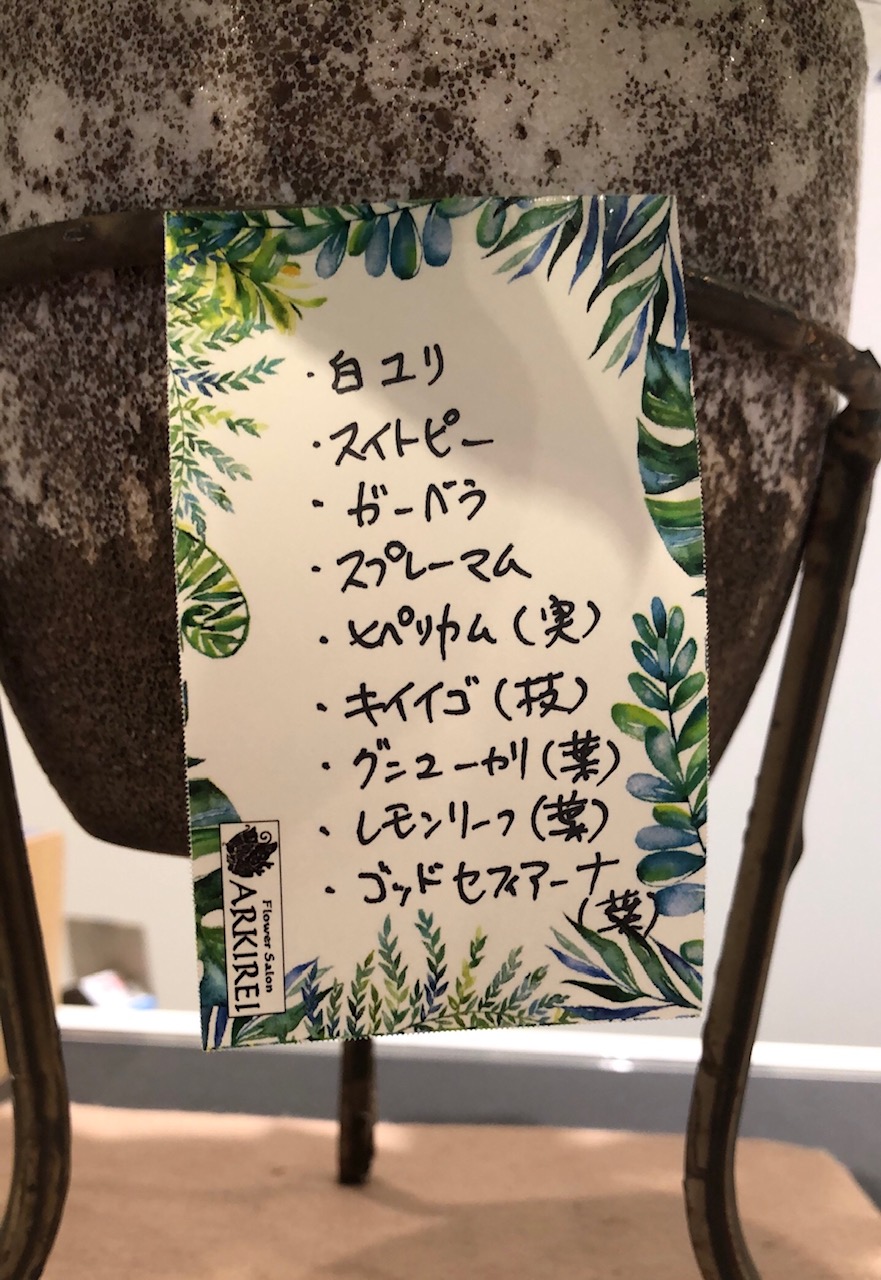 ・白ユリ
・スイトピー
・ガーベラ
・スプレーマム
・ヒペリカム(実)
・キイイゴ(枝)
・グニユーカリ(葉)
・レモンリーフ(葉)
・ゴッドセフィアーナ
(葉)
Flower Salon
ARKIREI